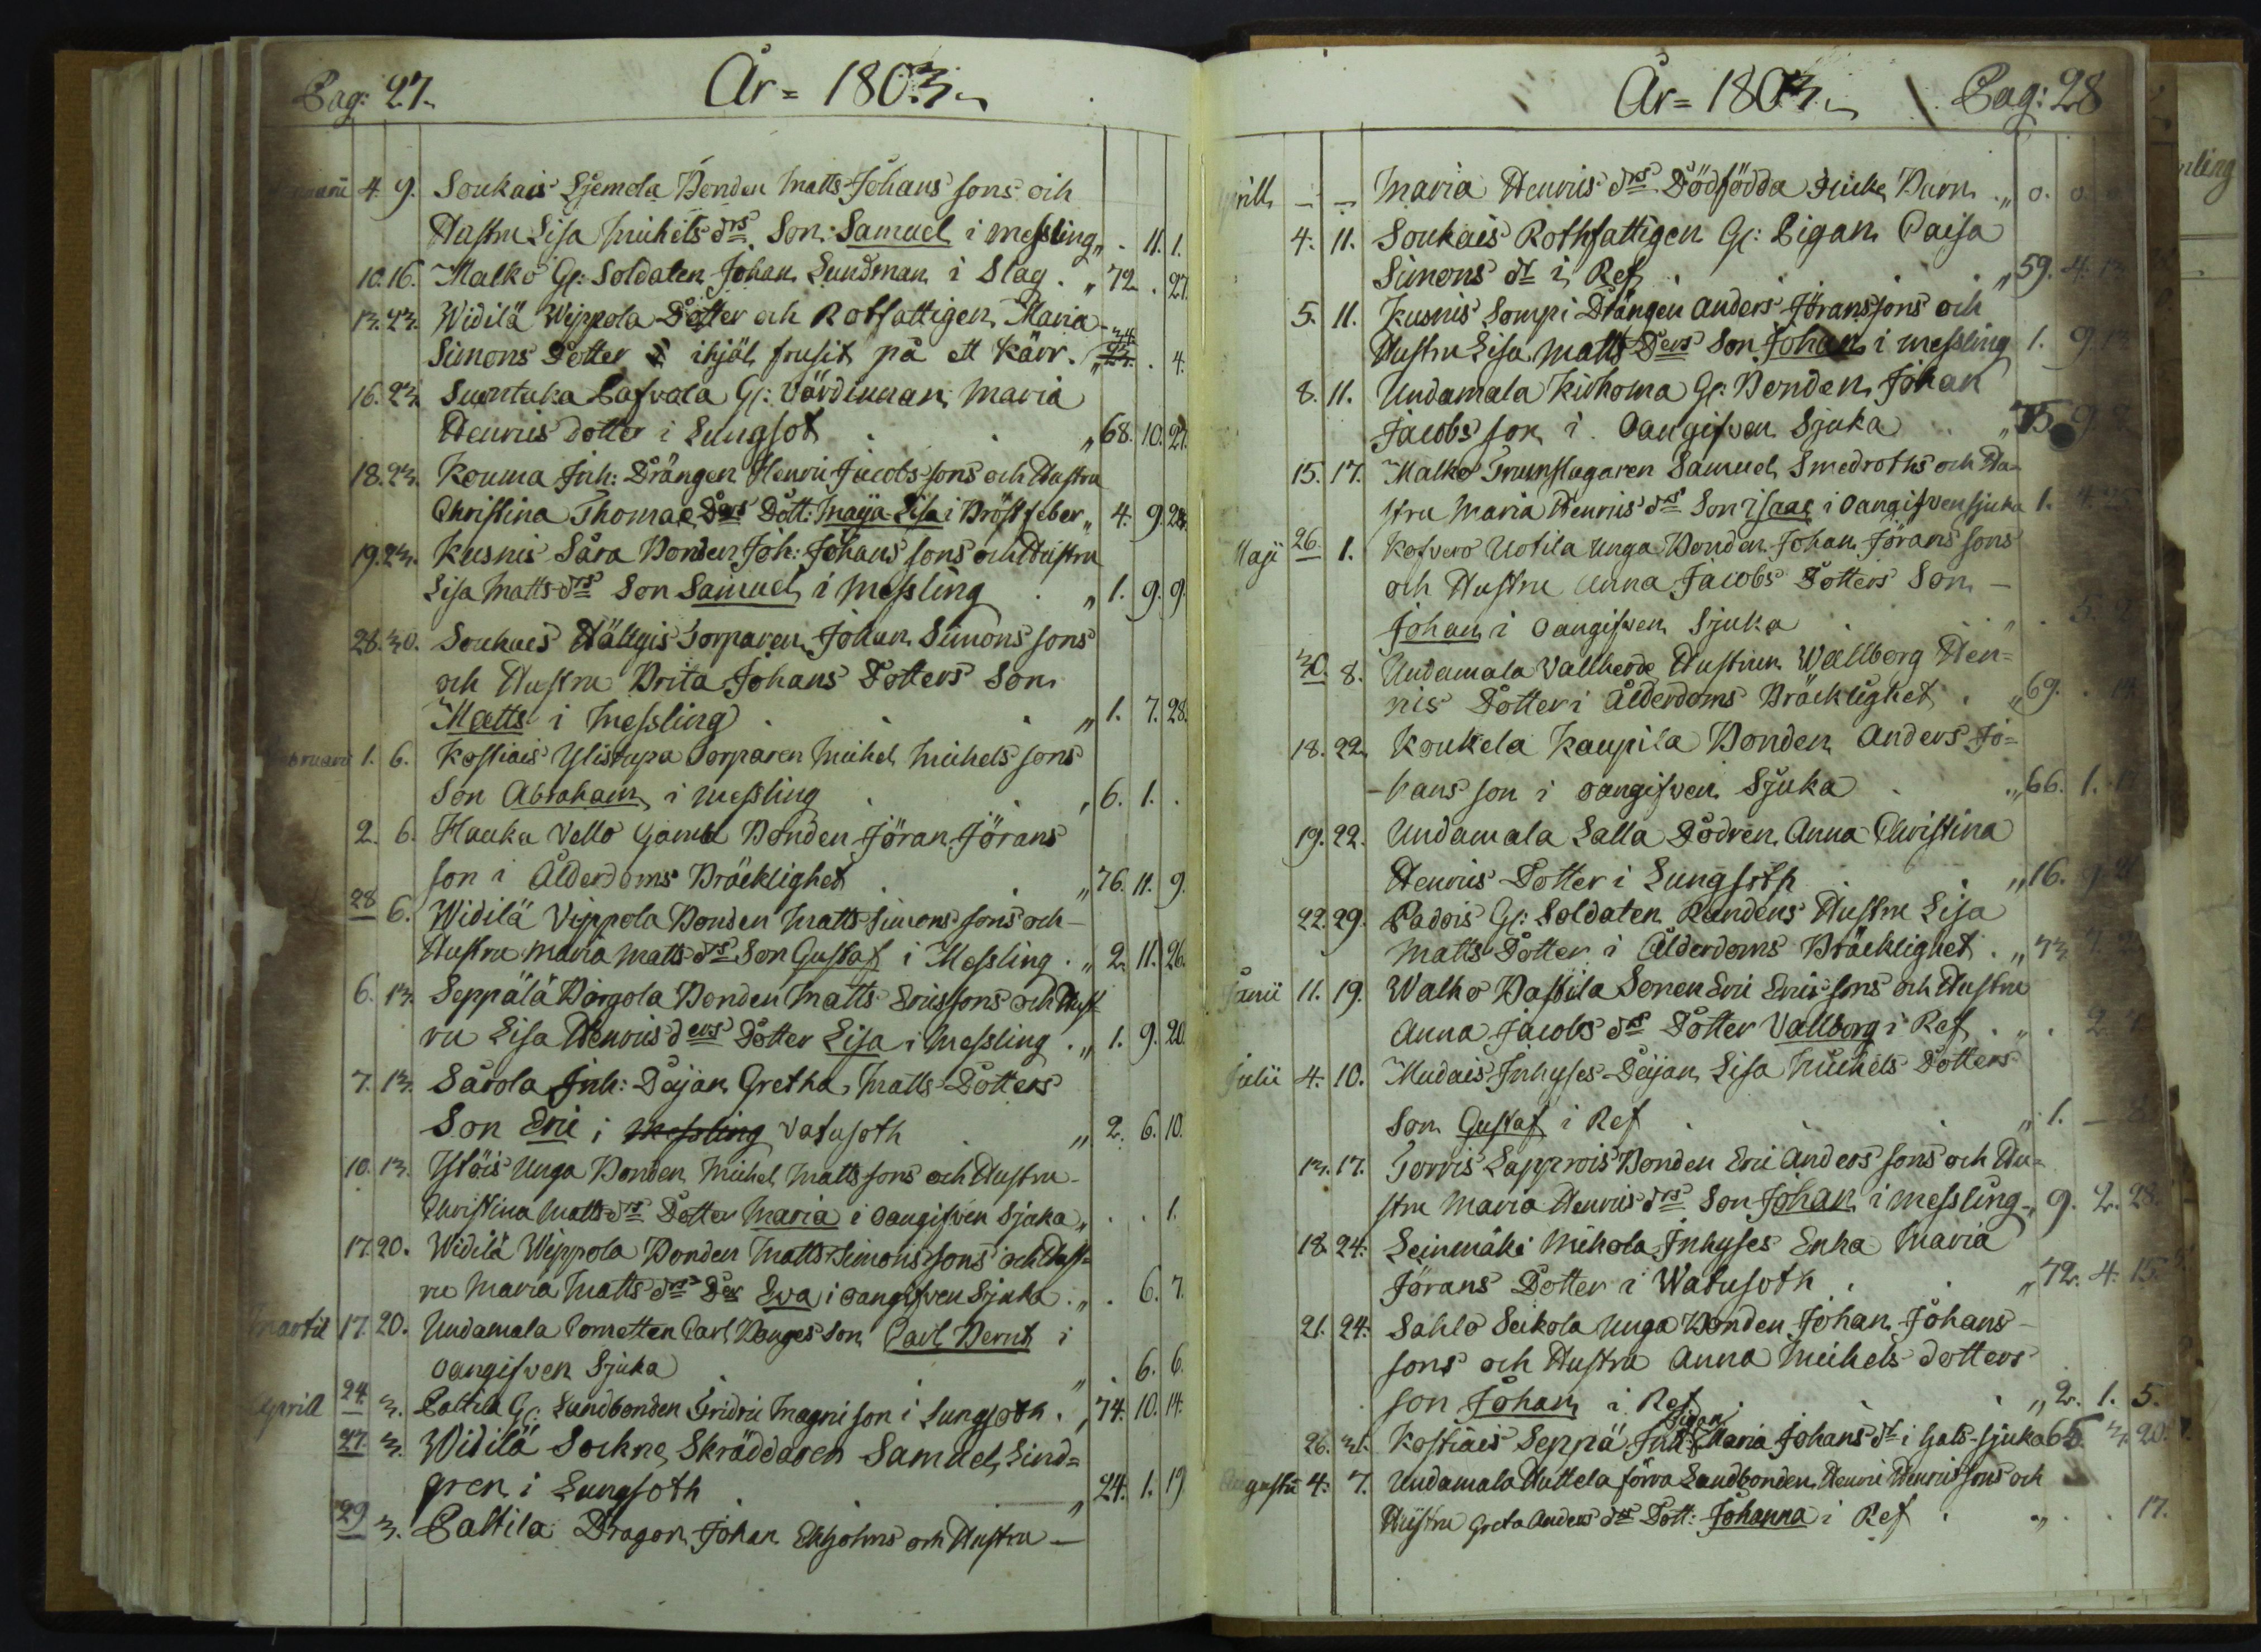 Pag: 27.
År = 1803.
4. 9. Soukais Sjemola Bonden Matts Johans sons och
Hustru Lisa Michels drs Son: Samuel i Messling „ . 11. 1.
10. 16. Malko Gl: Soldaten Johan Lundman i Slag . „ 72 . 27.
13. 23. Widilä Wippola Dotter och Rotfattigen Maria
Simons Dotter ihjäl frusit på ett Kärr. „ 34 . 4.
16. 23. Suontaka Gl: Värdinnan Maria
Henrics dotter i Lungsot . . „ 68. 10. 27.
18. 23. Kouma Inh: Drängen Henric Jacobs sons och Hustru
Christina Thomae Ders Dott: Maija Lisa i Bröstfeber „ 4. 9. 28.
19. 23. Kusnis Såra Bonden Joh: Johans sons och Hustru
Lisa Matts drs Son Samuel i Messling . „ 1. 9. 9.
28. 30. Soukais Hällgis Torparen Johan Simons sons
och Hustru Brita Johans Dotters Son
Matts i Messling . . . „ 1. 7. 28.
Februarii 1. 6. Kostiais Ylistupa Torparen Michel Michels sons
Son Abraham i Messling . . „ 6. 1. .
2. 6. Hauka Vello Gamla Bonden Jöran Jörans
son i Ålderdoms Bräcklighet . . „ 76. 11. 9.
28 6. Widilä Vippola Bonden Matts Simons sons och
Hustru Maria Matts drs Son Gustaf i Messling . „ 2. 11. 26.
6. 13. Seppälä Börgola Bonden Matts Erics sons och Hust
ru Lisa Henrics ders Dotter Lisa i Messling . „ 1. 9. 20.
7. 13. Sarola Inh: Pigan Gretha Matts Dotters
Son Eric i Messling Vatusoth . „ 2. 6. 10.
10. 13. Ylöis Unga Bonden Michel Matts sons och Hustru
Christina Matts drs Dotter Maria i oangifven Sjuka „ . . 1.
17. 20. Widilä Wippola Bonden Matts Simons sons och Hust=
ru Maria Matts drs Der Eva i oangifven Sjuka . „ . 6. 7.
Martii 17. 20. Undamala Cornetten Carl Son Carl Bernt i
oangifven Sjuka . . „ . 6. 6.
Aprill 24. 3. Paltila Gl: Landbonden Fridric Magni son i Lungsoth . „ 74. 10. 14.
27. 3. Widilä Sockne Skräddaren Samuel Lind=
gren i Lungsoth . . „ 24. 1. 19
29 3. Paltila Dragon Johan Ekholms och Hustru —
År = 1803. Pag: 28
Aprill — — Maria Henrics drs Dödfödda Flicke Barn . „ 0. 0.
4. 11. Soukais Rothfattigen Gl: Pigan Caisa
Simons dr i Ref . . . „ 59. 4. 13
5. 11. Kusnis Sompi Drängen Anders Jörans sons och
Hustru Lisa Matts Ders Son Johan i Messling 1. 9
8. 11. Undamala Kirhoma Gl: Bonden Johan
Jacobs son i Oangifven Sjuka . . „ 75 9
15. 17. Malko Trumslagaren Samuel Smedroths och Hu=
stru Maria Henrics drs Son Isaac i oangifven sjuka 1. 4.
Maji 26. 1. Kosvero Uotila Unga Bonden Johan Jörans sons
och Hustru Anna Jacobs Dotters Son —
Johan i oangifven Sjuka . . 5.
30. 8. Undamala Vallherde Hustrun Wallborg Hen=
rics Dotter i Ålderdoms Bräcklighet . „ 69. . 14
18. 22. Koukela Kaupila Bonden Anders Jo=
hans son i oangifven Sjuka . „ 66. 1.
19. 22. Undamala Lalla Anna Christina
Henrics Dotter i Lungsoth . „ 16. 9
22. 29. Padois Gl: Soldaten Randens Hustru Lisa
Matts Dotter i Ålderdoms Bräcklighet . „ 73. 7.
Junii 11. 19. Walko Passila Sonen Eric Erics sons och Hustru
Anna Jacobs drs Dotter Vallborg i Ref . „ . 2
Julii 4. 10. Mudais Inhyses Pigan Lisa Michels Dotters
Son Gustaf i Ref . . . „ 1. —
13. 17. Torvis Lapprois Bonden Eric Anders sons och Hu=
stru Maria Henrics drs Son Johan i Messling „ 9. 2. 28.
18. 24. Leinmäki Mickola Inhyses Enka Maria
Jörans Dotter i Watusoth . . „ 72. 4. 15.
21. 24. Sahlo Seikola Unga Bonden Johan Johans
sons och Hustru Anna Michels dotters
son Johan i Ref . . . „ 2. 1. 5.
Pigan
26. 31. Kostiais Seppä Inh: Maria Johans dr i Hals sjuka 65. 3. 20.
Augusti 4. 7. Undamala Huttela förra Landbonden Henric Henrics sons och
Hustru Greta Anders drs Dott: Johanna i Ref . „ . . 17.